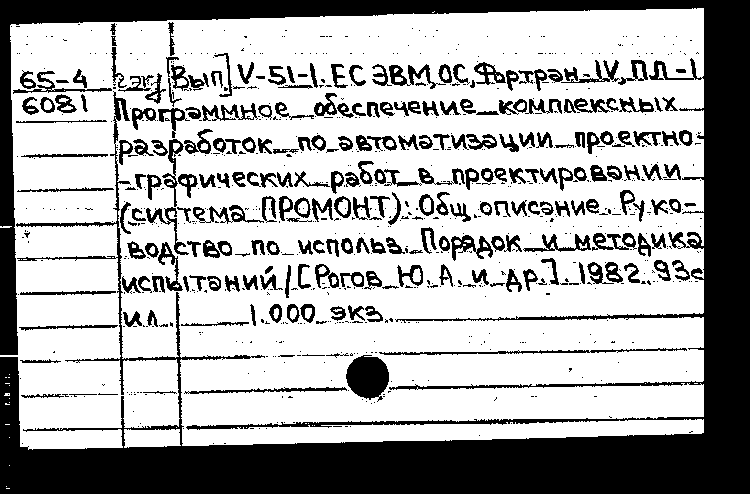 65-4 2экз [Вып] V-51-1. ЕС ЭВМ, ОС, Фортран-IV, ПЛ-1
6081 Программное обеспечение комплексных
разработок по автоматизации проектно-
-графических работ в проектировании
(система ПРОМОНТ): Общ. описание. Руко-
водство по использ. Порядок и методика
испытаний / [Рогов Ю. А. и др.]. 1982. 93с
ил. 1.000 экз.